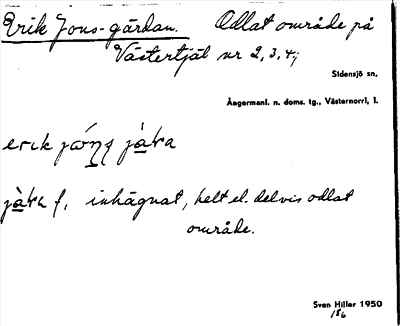 Erik Jons-gärdan. Odlat område på
Västertjäl nr 2, 3, 4;
Sidensjö sn,
Ångermanl. n. doms. tg., Västernorrl. l.
erik
f. inhägnat, helt el. delvis odlat
område.
Sven Hiller 1950